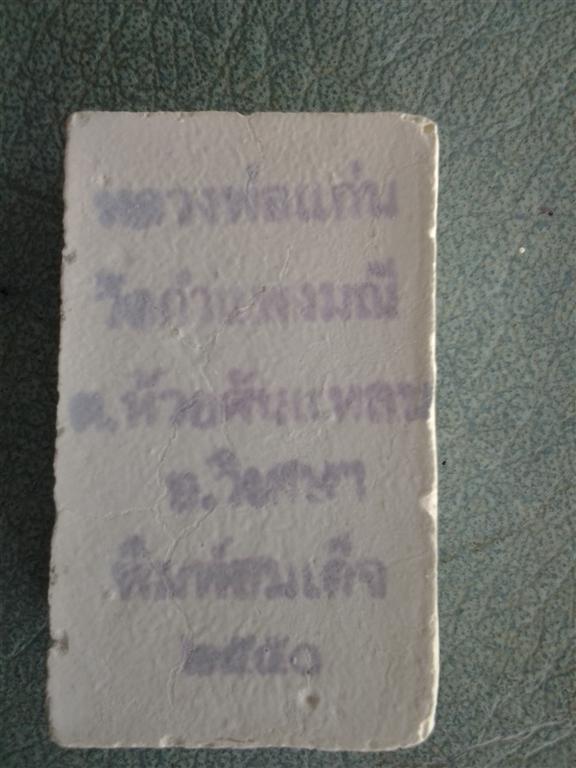 หลวงพ่อแก่น
วัดกำแพงมณี
ต.ห้วยคันแหลน
อ.วิเศษฯ
พิมพ์สมเด็จ
๒๕๕๐